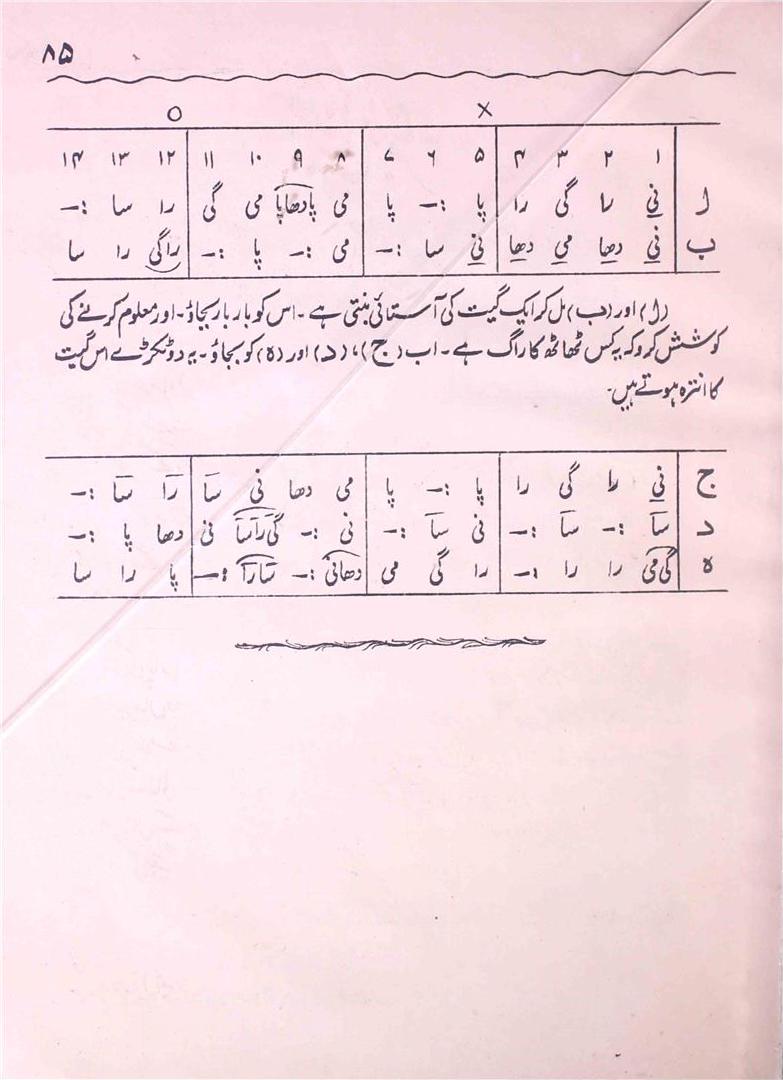 ۸۵
X O
۱ ۲ ۳ ۴ ۵ ۶ ۷ ۸ ۹ ۱۰ ۱۱ ۱۲ ۱۳ ۱۴
ل نی را گی را پا :- پا می پادھاپا می گی را سا :-
ب نی دھا می دھا نی سا :- می :- پا :- راگی را سا
(ل) اور (ب) مل کر ایک گیت کی آستائی بنتی ہے ۔ اس کو بار بار بجاؤ ۔ اور معلوم کرنے کی
کوشش کرو کہ یہ کس ٹھاٹھ کا راگ ہے ۔ اب (ج)، (د) اور (ہ) کو بجاؤ ۔ یہ دو ٹکڑے اس گیت
کا انترہ ہوتے ہیں۔
ج نی را گی را پا :- پا می دھا نی سا را سا :-
د سا :- سا :- نی سا :- نی :- گی راسا نی دھا پا :-
ہ گی می را را :- را گی می دھانی :- سارا :- پا را سا